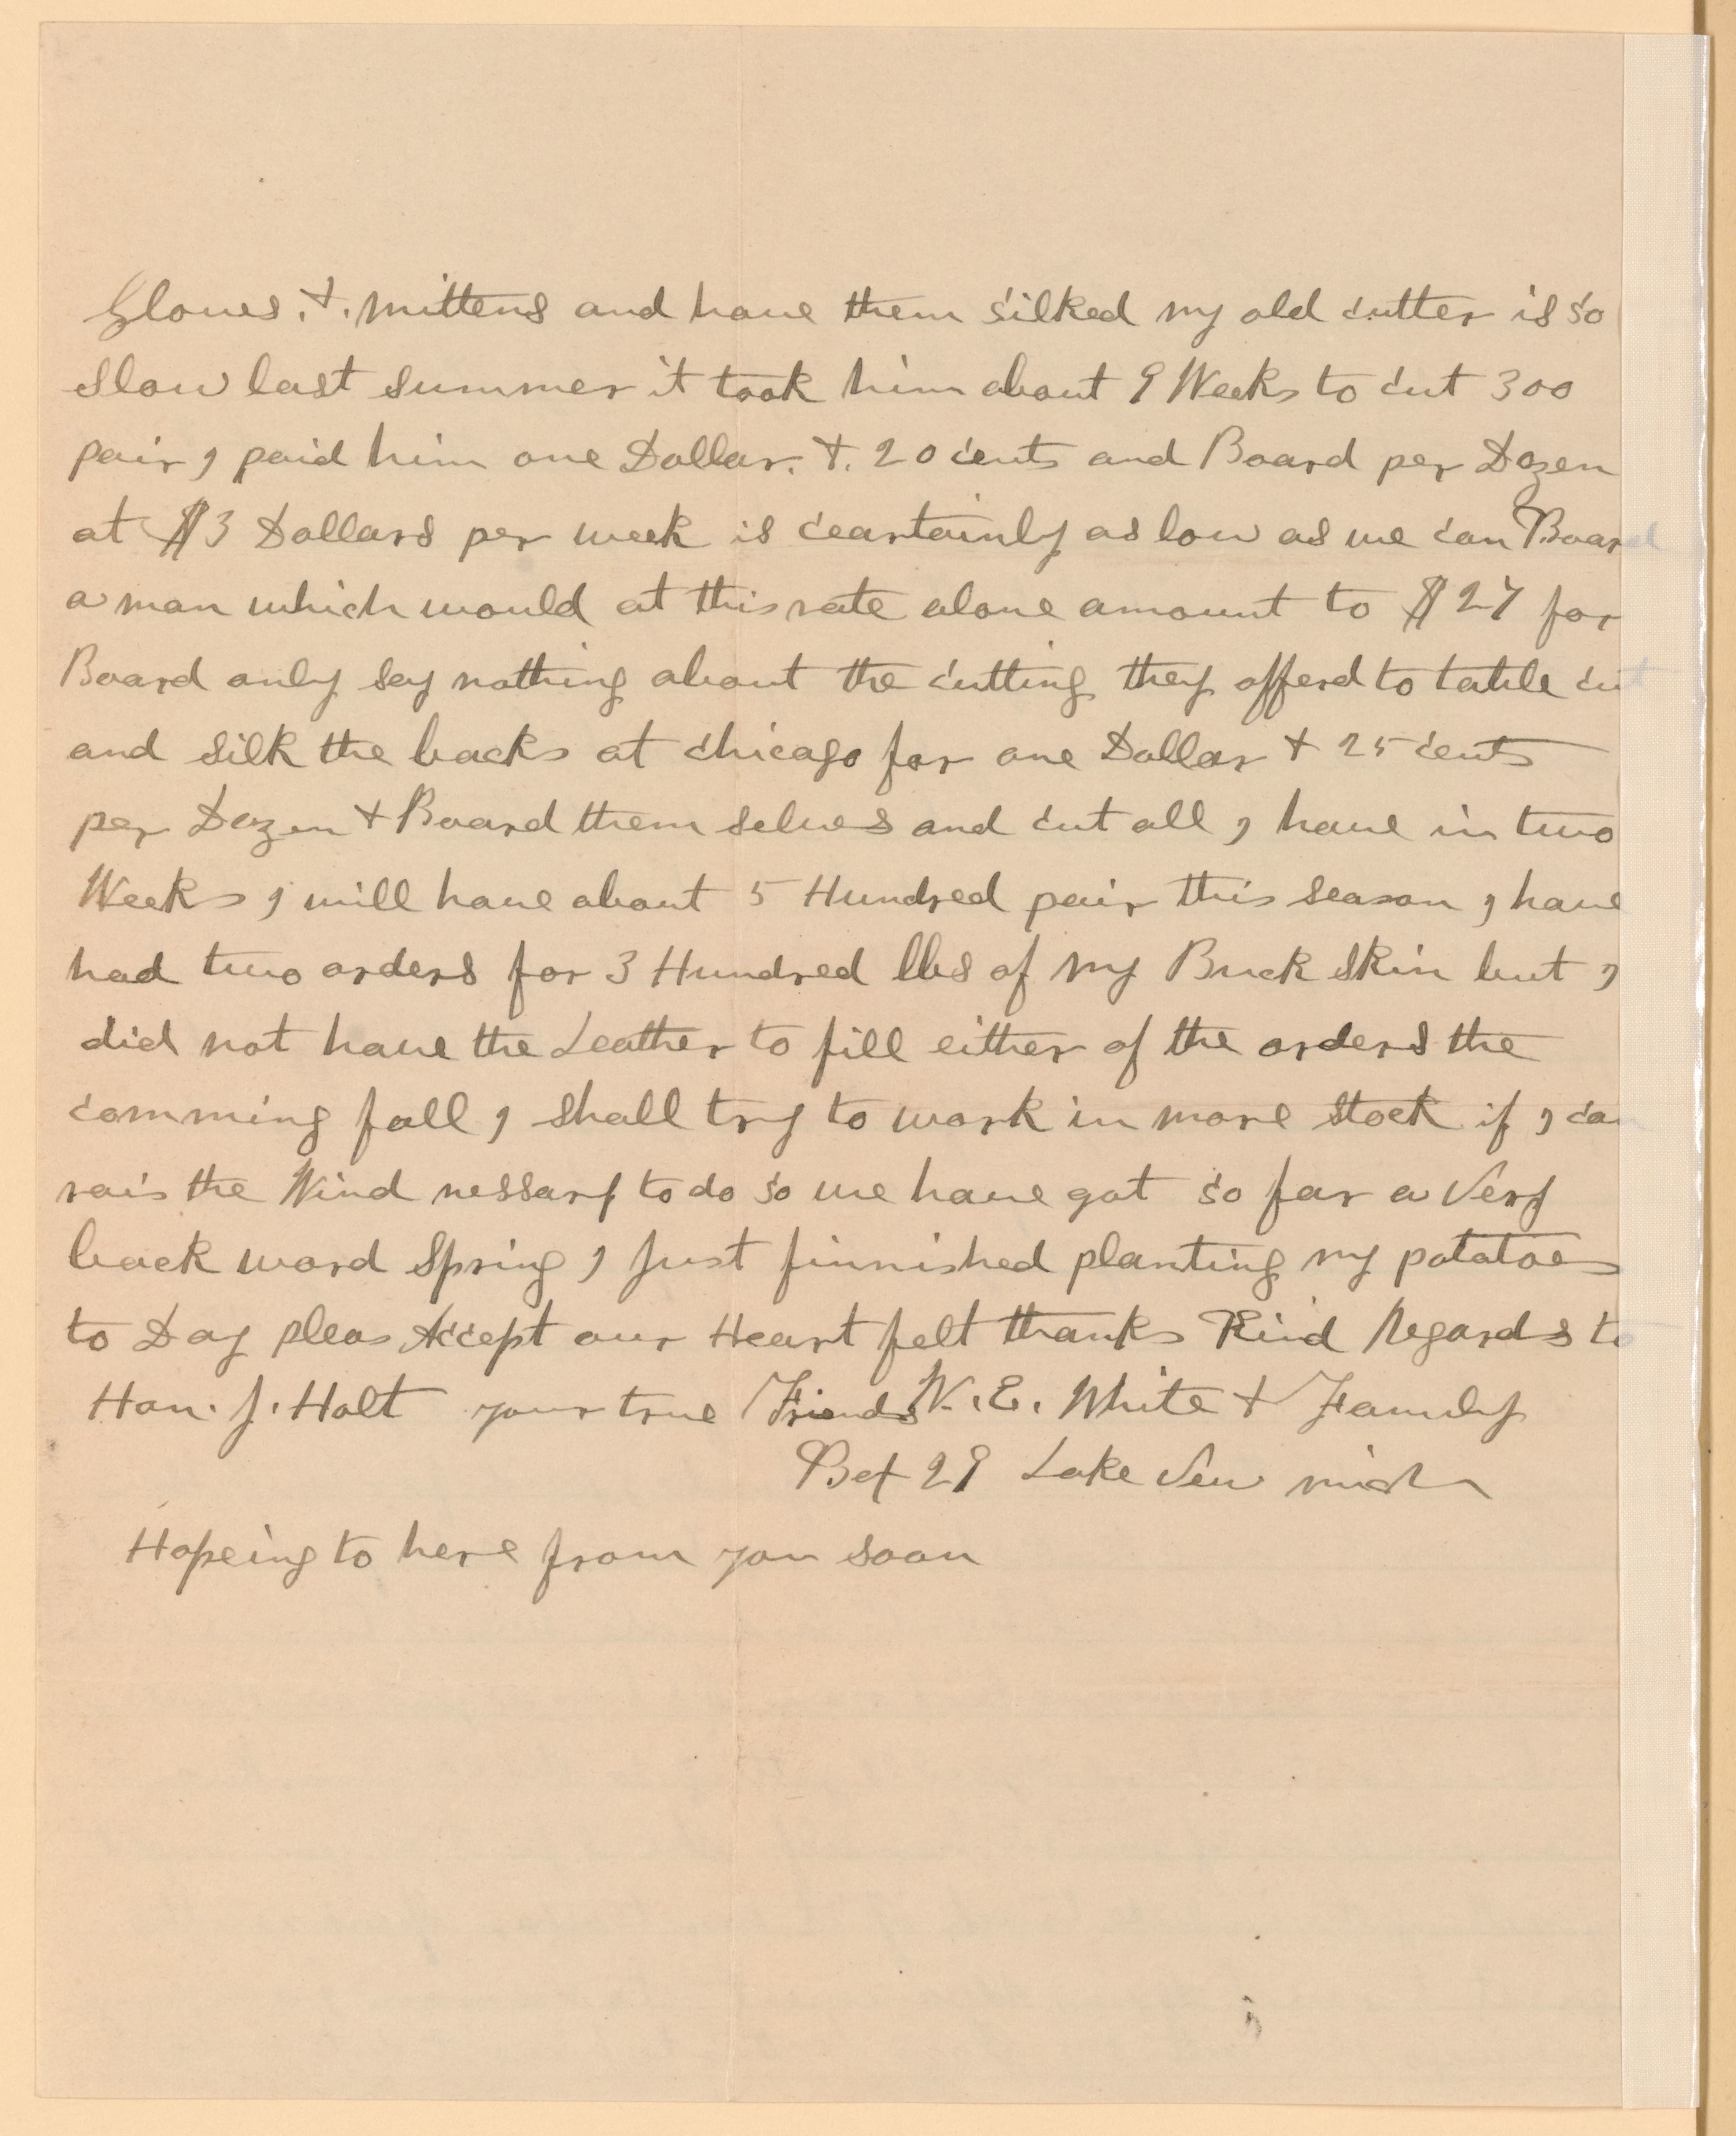 Gloves. +. mittens and have them silked my old cutter is so
slow last summer it took him about 9 Weeks to cut 300
pair I paid him one Dollar. +. 20 cents and Board per Dozen
at $3 Dollars per week is ceartainly as low as we can Board
a man which would at this rate alone amount to $27 for
Board only say nothing about the cutting they offerd to table cut
and silk the backs at chicago for one Dollar + 25 cents
per Dozen + Board them selves and cut all I have in two
Weeks I will have about 5 Hundred pair this season I have
had two orders for 3 Hundred lbs of my Buck skin but I
did not have the Leather to fill either of the orders the
comming fall I shall try to work in more stock if I can
rais the Wind nessary to do so we have got so far a Very
back word Spring I Just finnished planting my potatoes
to Day pleas Accept our Heart felt thanks Kind Regards to
Hon. J. Holt your true Friends W. E. White + Family
29 Lake Vew mich
Hopeing to here from you soon